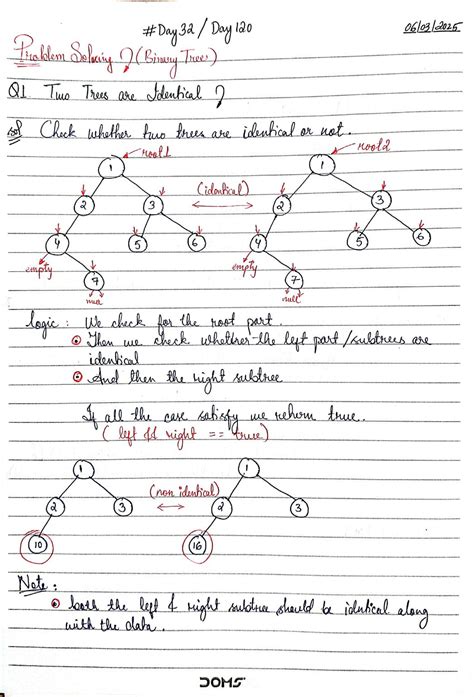 #Day 32 / Day 120
06/03/2025
Problem Solving ? (Binary Trees)
Q1 Two Trees are Identical ?
sol Check whether two trees are identical or not.
root1
root2
1
1
(identical)
2
3
2
3
4
5
6
4
5
6
empty
7
empty
7
null
null
logic : We check for the root part.
Then we check whether the left part / subtrees are
identical
And then the right subtree
If all the case satisfy we return true.
( left && right == true)
1
1
(non identical)
2
3
2
3
10
16
Note :
both the left & right subtree should be identical along
with the data.
DOMS